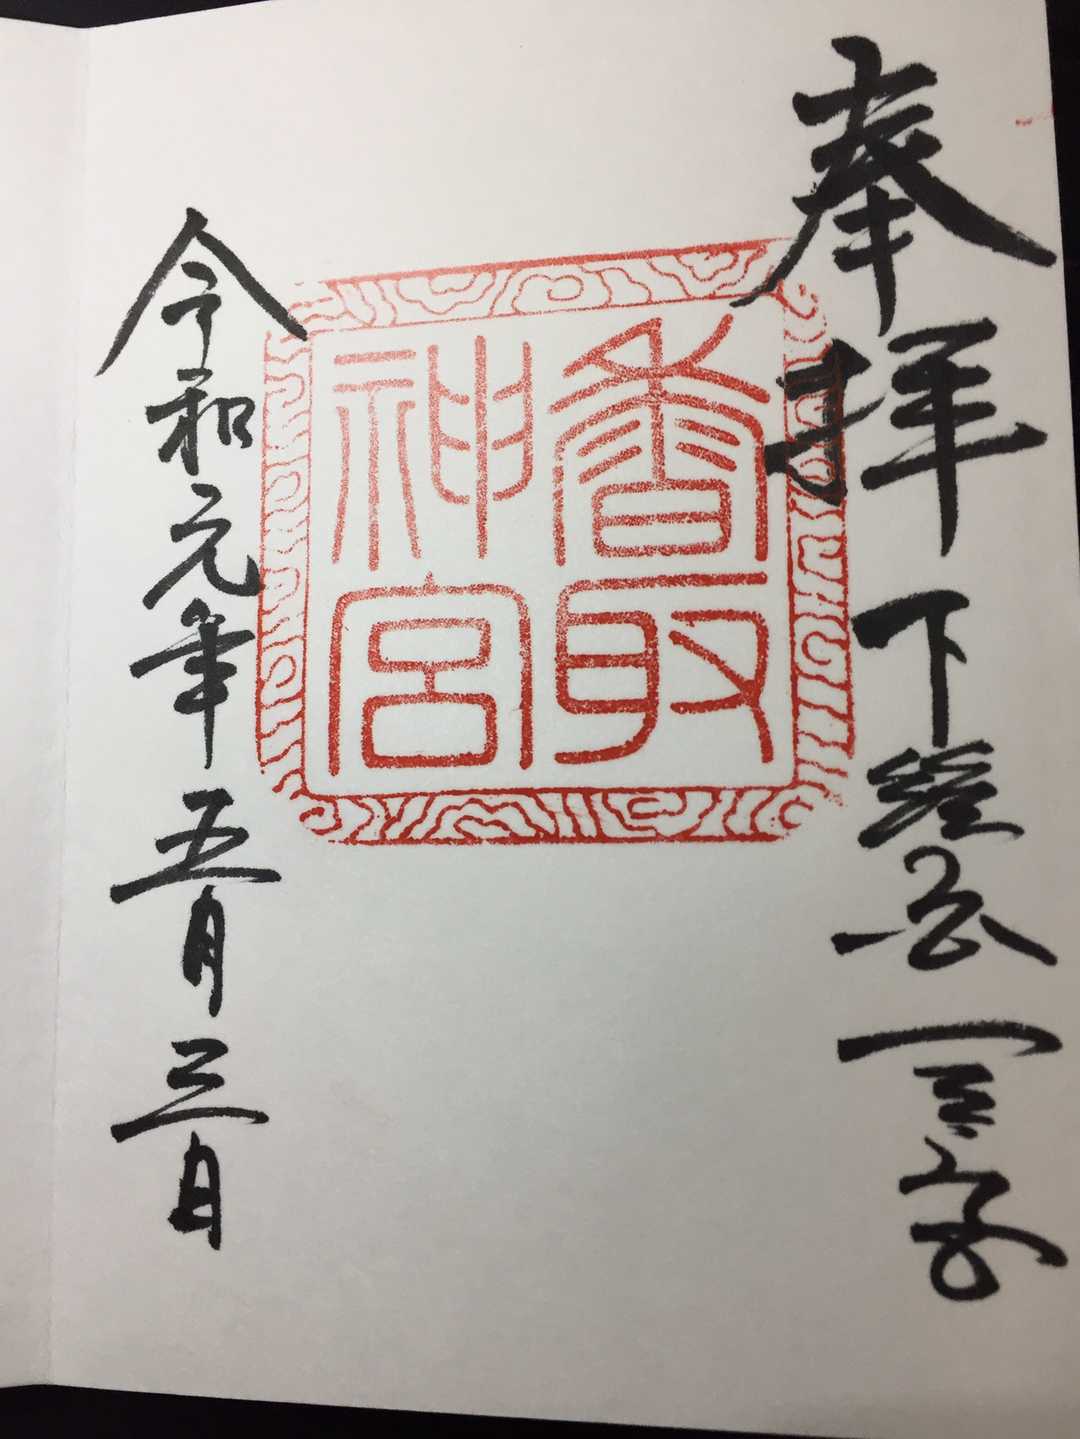 奉拝 下総国一宮
香取
神宮
令和元年五月三日